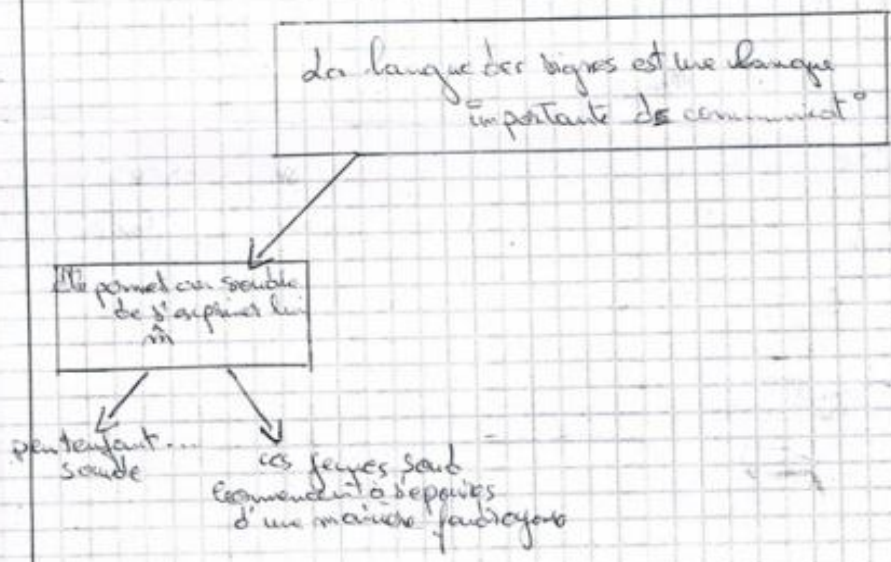 La langue des signes est une langue
importante de communicat°
Elle permet au sourde
de s'exprimer lui
m̂
sourde
ces jeunes sourd
commencent à s'epanies
d'une manière foudroyante